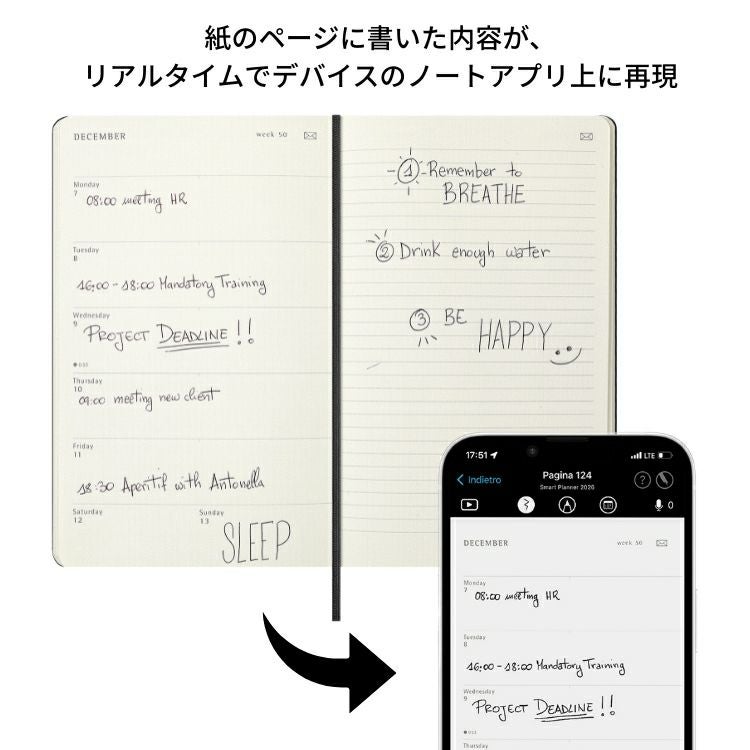 紙のページに書いた内容が、
リアルタイムでデバイスのノートアプリ上に再現
DECEMBER week 50
Monday
7
08:00 meeting HR
Tuesday
8
16:00 - 18:00 Mandatory Training
Wednesday
9
PROJECT DEADLINE !!
Thursday
10
09:00 meeting new client
Friday
11
18:30 Aperitif with Antonella
Saturday
12
Sunday
13
SLEEP
1 Remember to
BREATHE
2 Drink enough water
3 BE HAPPY
17:51 LTE
Indietro Pagina 124 ?
Smart Planner 2026
0
DECEMBER week 50
Monday
7
08:00 meeting HR
Tuesday
8
16:00 - 18:00 Mandatory Training
Wednesday
9
PROJECT DEADLINE !!
Thursday